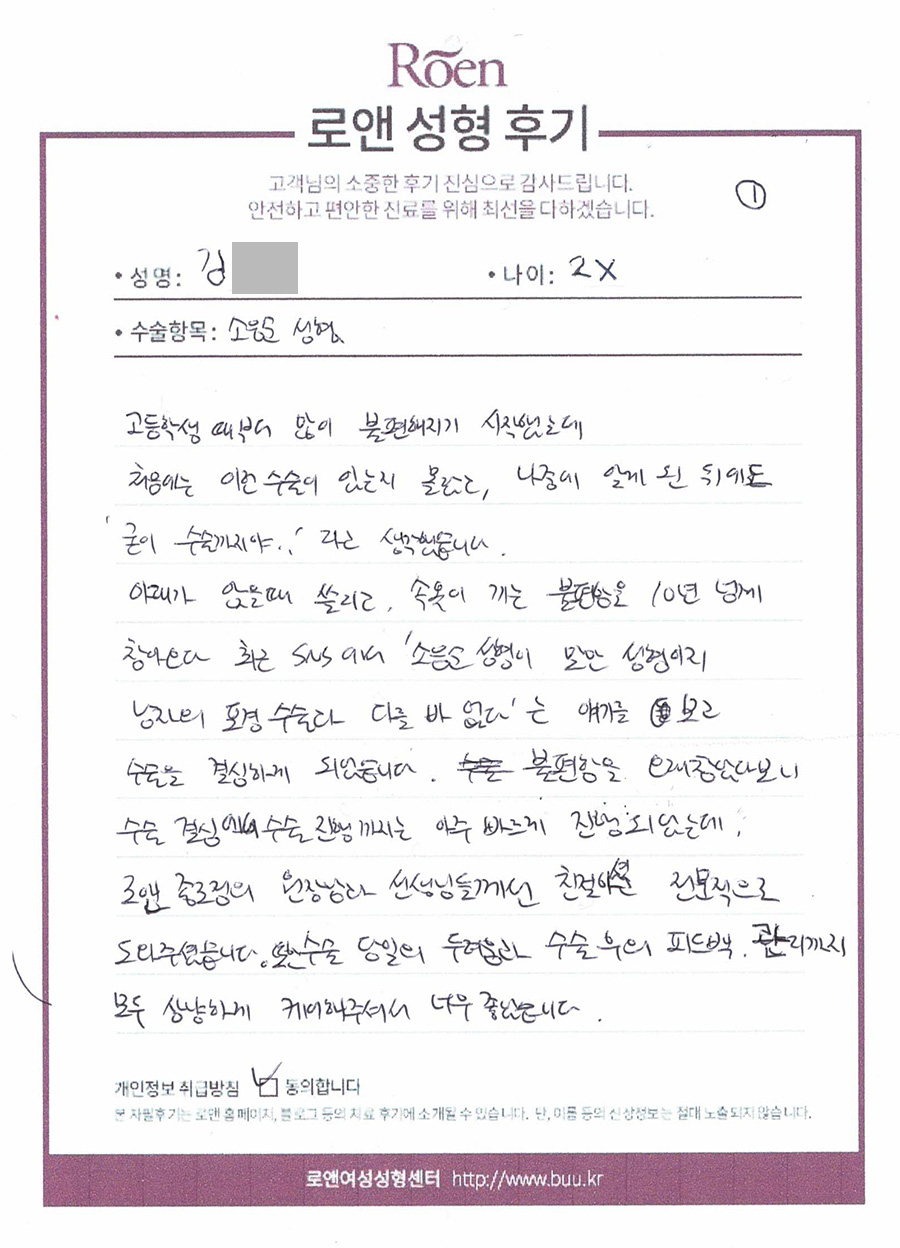 Roen
로앤 성형 후기
고객님의 소중한 후기 진심으로 감사드립니다.
안전하고 편안한 진료를 위해 최선을 다하겠습니다.
①
• 성명: 김
• 나이: 2X
• 수술항목: 소음순 성형
고등학생 때부터 많이 불편해지기 시작했는데
처음에는 이런 수술이 있는지 몰랐고, 나중에 알게 된 뒤에도
'굳이 수술까지야..' 라고 생각했습니다.
아래가 앉을때 쓸리고, 속옷이 끼는 불편함을 10년 넘게
참아오다 최근 SNS에서 '소음순 성형이 말만 성형이지
남자의 포경 수술과 다를 바 없다'는 얘기를 보고
수술을 결심하게 되었습니다. 불편함을 오래참았다보니
수술 결심에서 수술 진행까지는 아주 빠르게 진행되었는데,
로앤 종로점의 원장님과 선생님들께선 친절하셨 전문적으로
도와주셨습니다. 또한 수술 당일의 두려움과 수술 후의 피드백, 관리까지
모두 상냥하게 케어해주셔서 너무 좋았습니다.
개인정보 취급방침 동의합니다
본 자필후기는 로앤 홈페이지, 블로그 등의 치료 후기에 소개될 수 있습니다. 단, 이름 등의 신상정보는 절대 노출되지 않습니다.
로앤여성성형센터 http://www.buu.kr